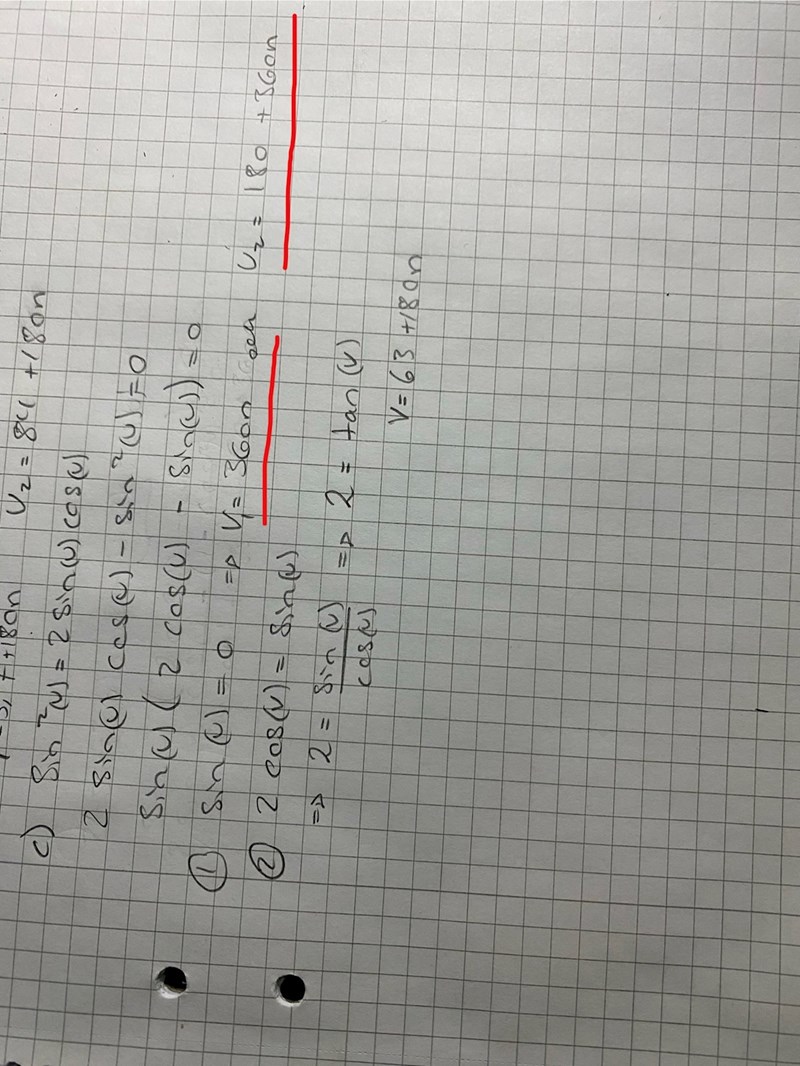 +180n v₂ = 84 +180n
c) sin²(v) = 2 sin(v) cos(v)
2 sin(v) cos(v) - sin²(v) = 0
sin(v) ( 2 cos(v) - sin(v)) = 0
① sin(v) = 0 => v₁ = 360n och v₂ = 180 + 360n
② 2 cos(v) = sin(v)
=> 2 = sin(v)/cos(v) => 2 = tan(v)
v = 63 +180n